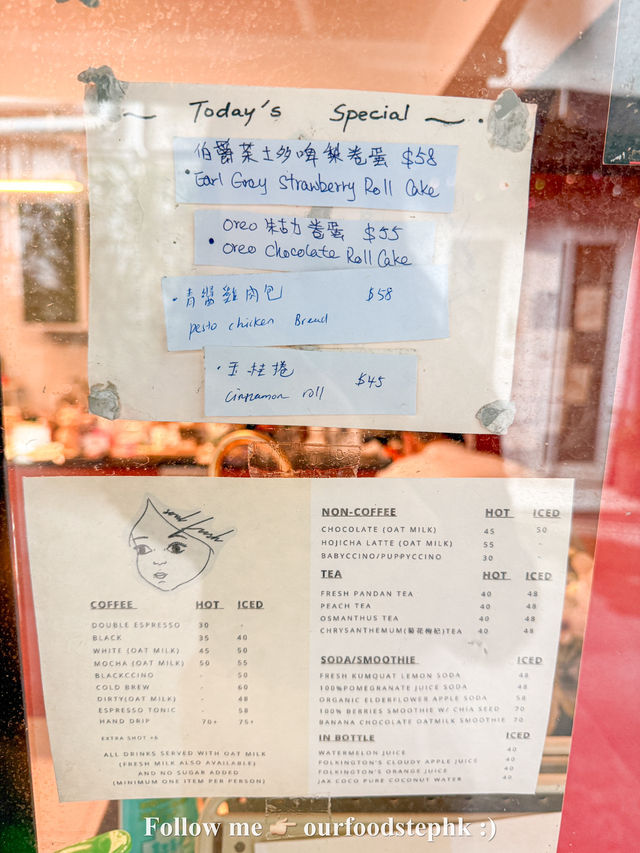 Today's Special
伯爵茶士多啤梨卷蛋 $58
Earl Grey Strawberry Roll Cake
Oreo 朱古力卷蛋 $55
Oreo Chocolate Roll Cake
青醬雞肉包 $58
pesto chicken Bread
玉桂捲 $45
Cinnamon roll
COFFEE HOT ICED
DOUBLE ESPRESSO 30 -
BLACK 35 40
WHITE (OAT MILK) 45 50
MOCHA (OAT MILK) 50 55
BLACKCCINO - 50
COLD BREW - 60
DIRTY(OAT MILK) - 48
ESPRESSO TONIC - 58
HAND DRIP 70+ 75+
EXTRA SHOT +6
ALL DRINKS SERVED WITH OAT MILK
(FRESH MILK ALSO AVAILABLE)
AND NO SUGAR ADDED
(MINIMUM ONE ITEM PER PERSON)
NON-COFFEE HOT ICED
CHOCOLATE (OAT MILK) 45 50
HOJICHA LATTE (OAT MILK) 55 -
BABYCCINO/PUPPYCCINO 30
TEA HOT ICED
FRESH PANDAN TEA 40 48
PEACH TEA 40 48
OSMANTHUS TEA 40 48
CHRYSANTHEMUM(菊花枸杞)TEA 40 48
SODA/SMOOTHIE ICED
FRESH KUMQUAT LEMON SODA 48
100%POMEGRANATE JUICE SODA 48
ORGANIC ELDERFLOWER APPLE SODA 58
100% BERRIES SMOOTHIE W/ CHIA SEED 70
BANANA CHOCOLATE OATMILK SMOOTHIE 70
IN BOTTLE ICED
WATERMELON JUICE 40
FOLKINGTON'S CLOUDY APPLE JUICE 40
FOLKINGTON'S ORANGE JUICE 40
JAX COCO PURE COCONUT WATER 40
Follow me 👉🏻 ourfoodstephk :)